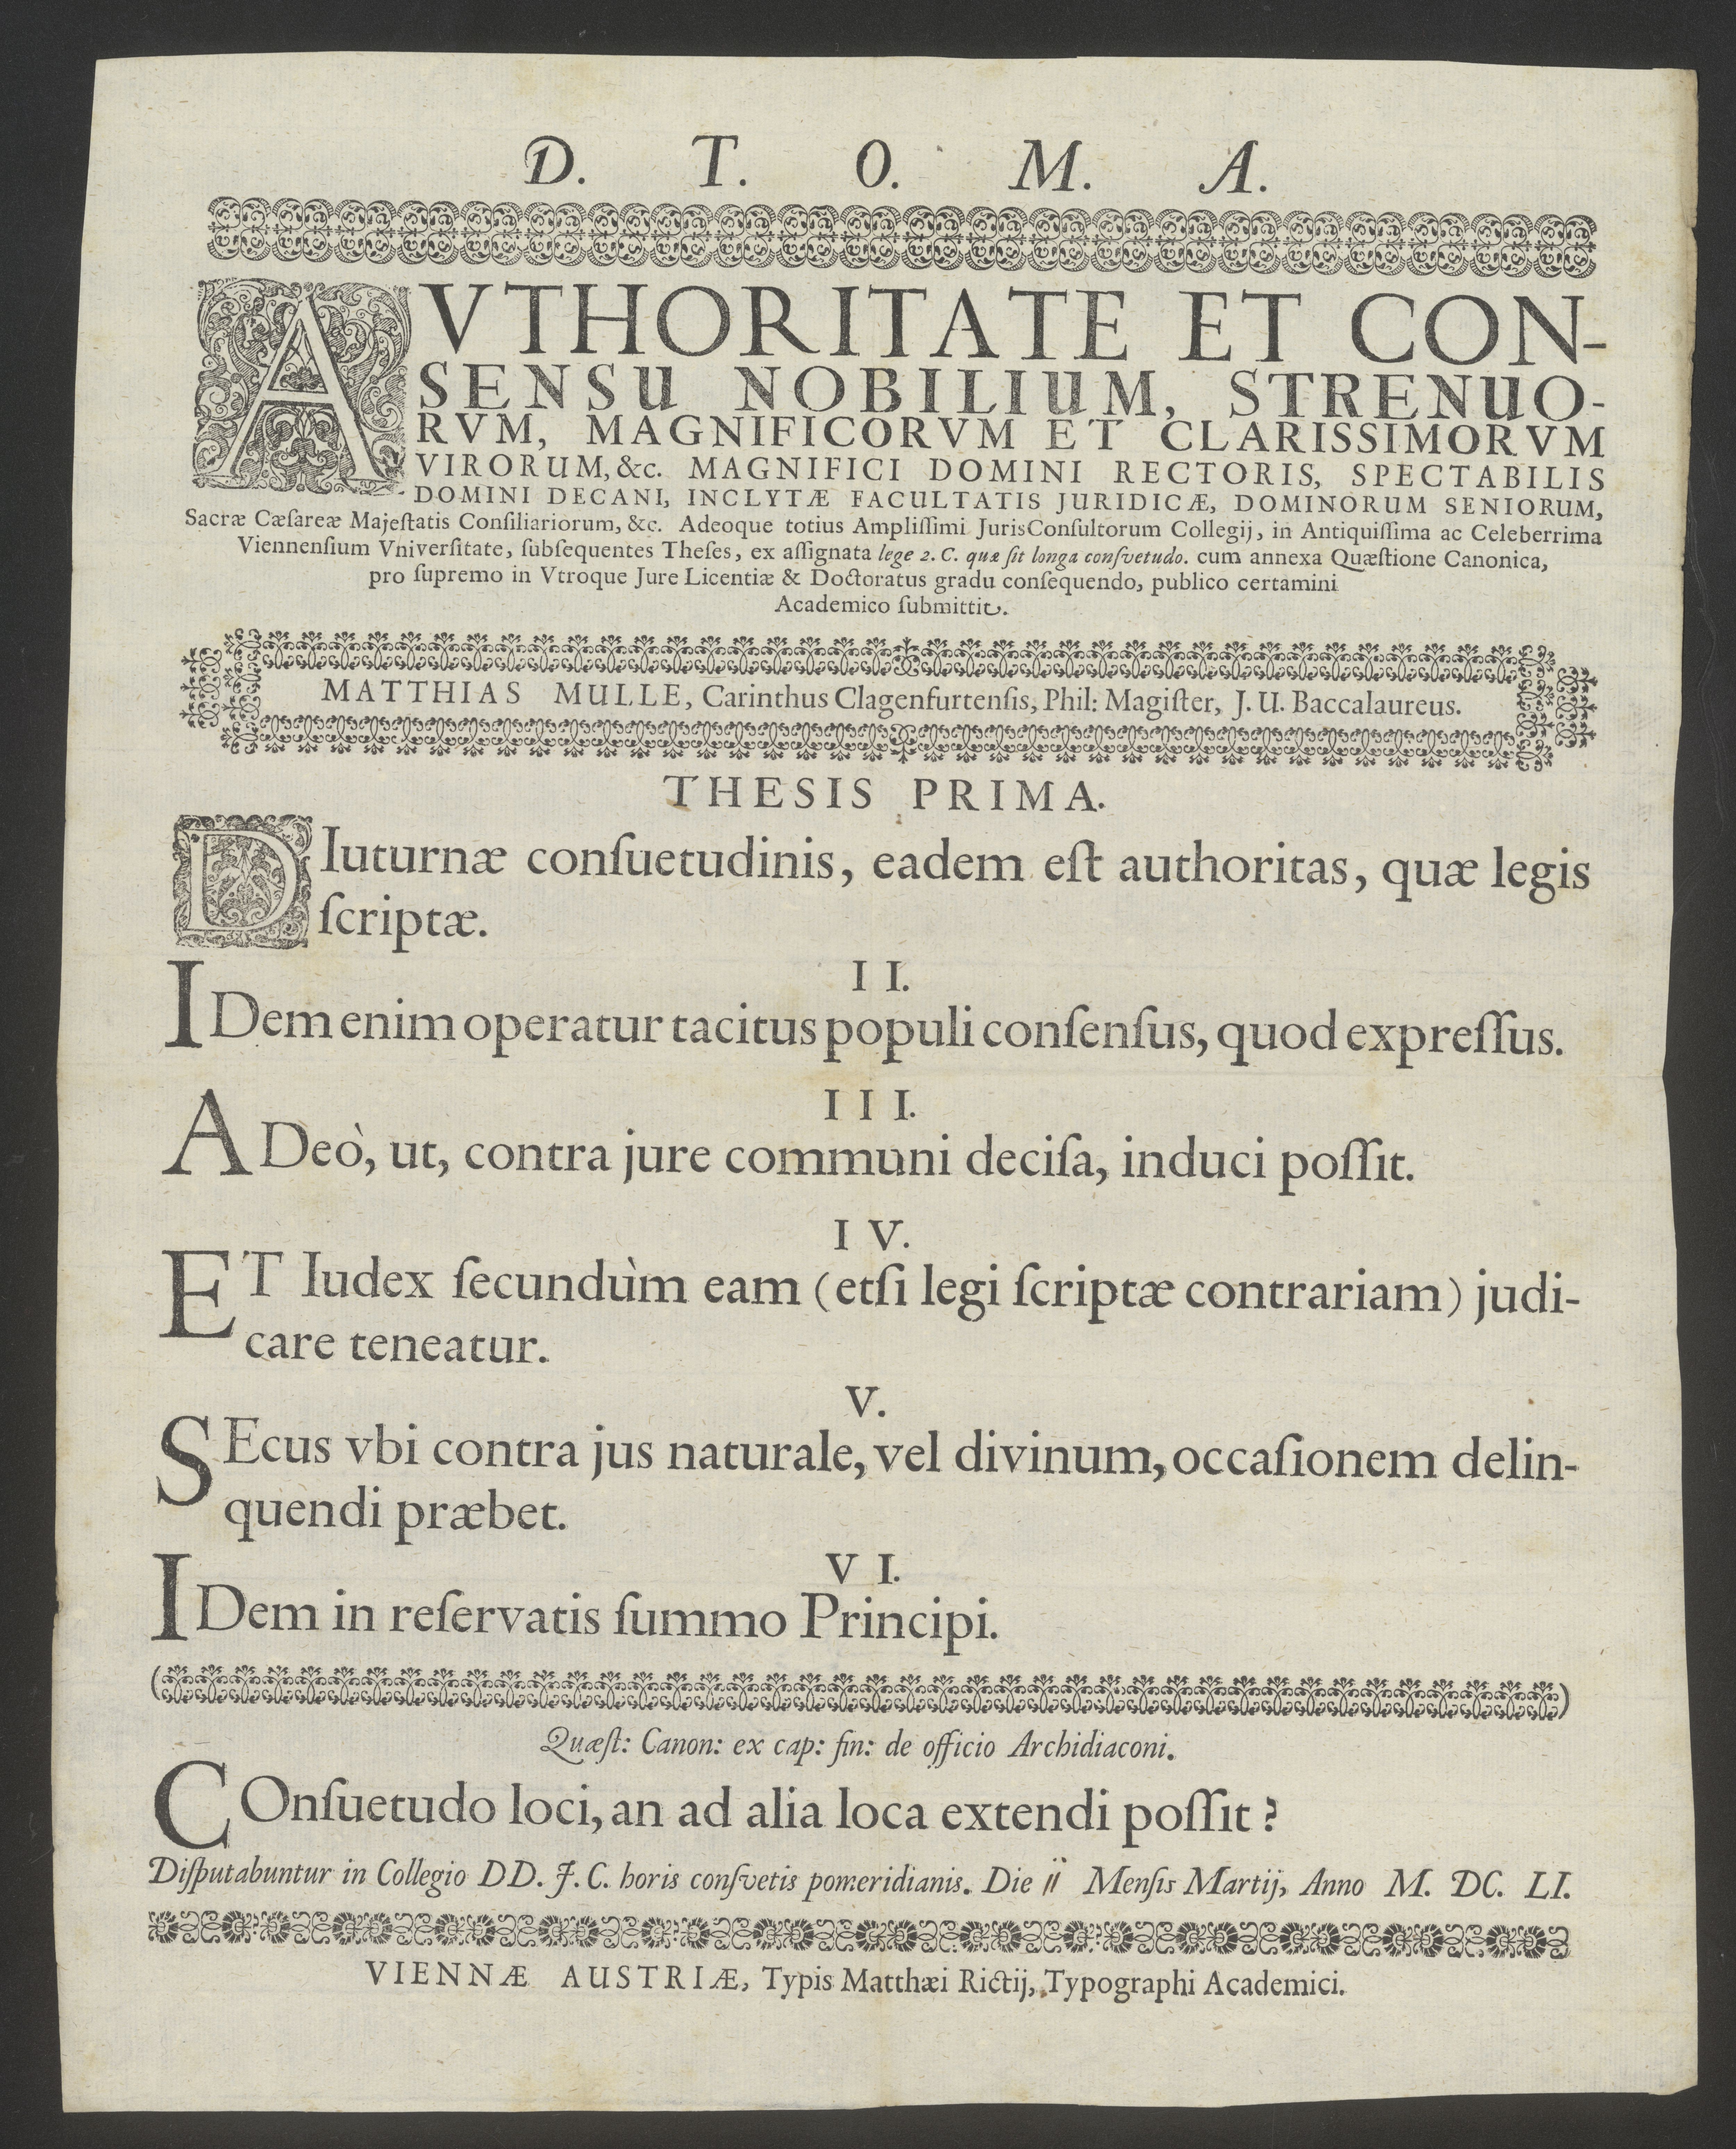 D. T. O. M. A.
AVTHORITATE ET CON-
SENSU NOBILIUM, STRENUO-
RVM, MAGNIFICORVM ET CLARISSIMORVM
VIRORUM, &c. MAGNIFICI DOMINI RECTORIS, SPECTABILIS
DOMINI DECANI, INCLYTÆ FACULTATIS JURIDICÆ, DOMINORUM SENIORUM,
Sacræ Cæſareæ Majeſtatis Conſiliariorum, &c. Adeoque totius Ampliſſimi JurisConſultorum Collegij, in Antiquiſſima ac Celeberrima
Viennenſium Vniverſitate, ſubſequentes Theſes, ex aſſignata lege 2. C. quæ ſit longa conſvetudo. cum annexa Quæſtione Canonica,
pro ſupremo in Vtroque Jure Licentiæ & Doctoratus gradu conſequendo, publico certamini
Academico ſubmittit.
MATTHIAS MULLE, Carinthus Clagenfurtenſis, Phil: Magiſter, J. U. Baccalaureus.
THESIS PRIMA.
DIuturnæ conſuetudinis, eadem eſt authoritas, quæ legis
ſcriptæ.
II.
IDem enim operatur tacitus populi conſenſus, quod expreſſus.
III.
ADeò, ut, contra jure communi deciſa, induci poſſit.
IV.
ET Iudex ſecundùm eam (etſi legi ſcriptæ contrariam) judi-
care teneatur.
V.
SEcus vbi contra jus naturale, vel divinum, occaſionem delin-
quendi præbet.
VI.
IDem in reſervatis ſummo Principi.
Quæſt: Canon: ex cap: fin: de officio Archidiaconi.
COnſuetudo loci, an ad alia loca extendi poſſit?
Diſputabuntur in Collegio DD. J. C. horis conſvetis pomeridianis. Die 11 Menſis Martij, Anno M. DC. LI.
VIENNÆ AUSTRIÆ, Typis Matthæi Rictij, Typographi Academici.